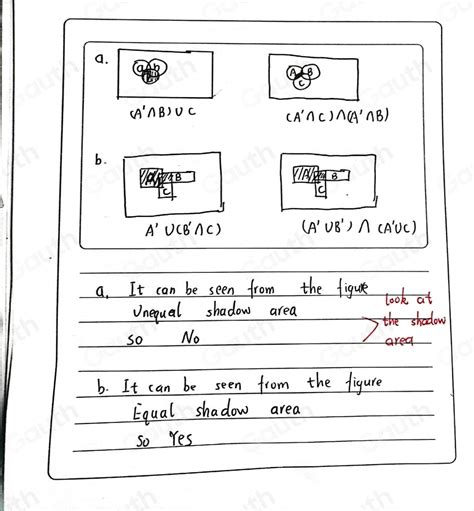 a.
a b
A B C
(A'∩B)∪C
(A'∩C)∩(A'∩B)
b.
B
C
A B
C
A'∪(B'∩C)
(A'∪B')∩(A'∪C)
a. It can be seen from the figure
Unequal shadow area
so No
look at
the shadow
area
b. It can be seen from the figure
Equal shadow area
so Yes